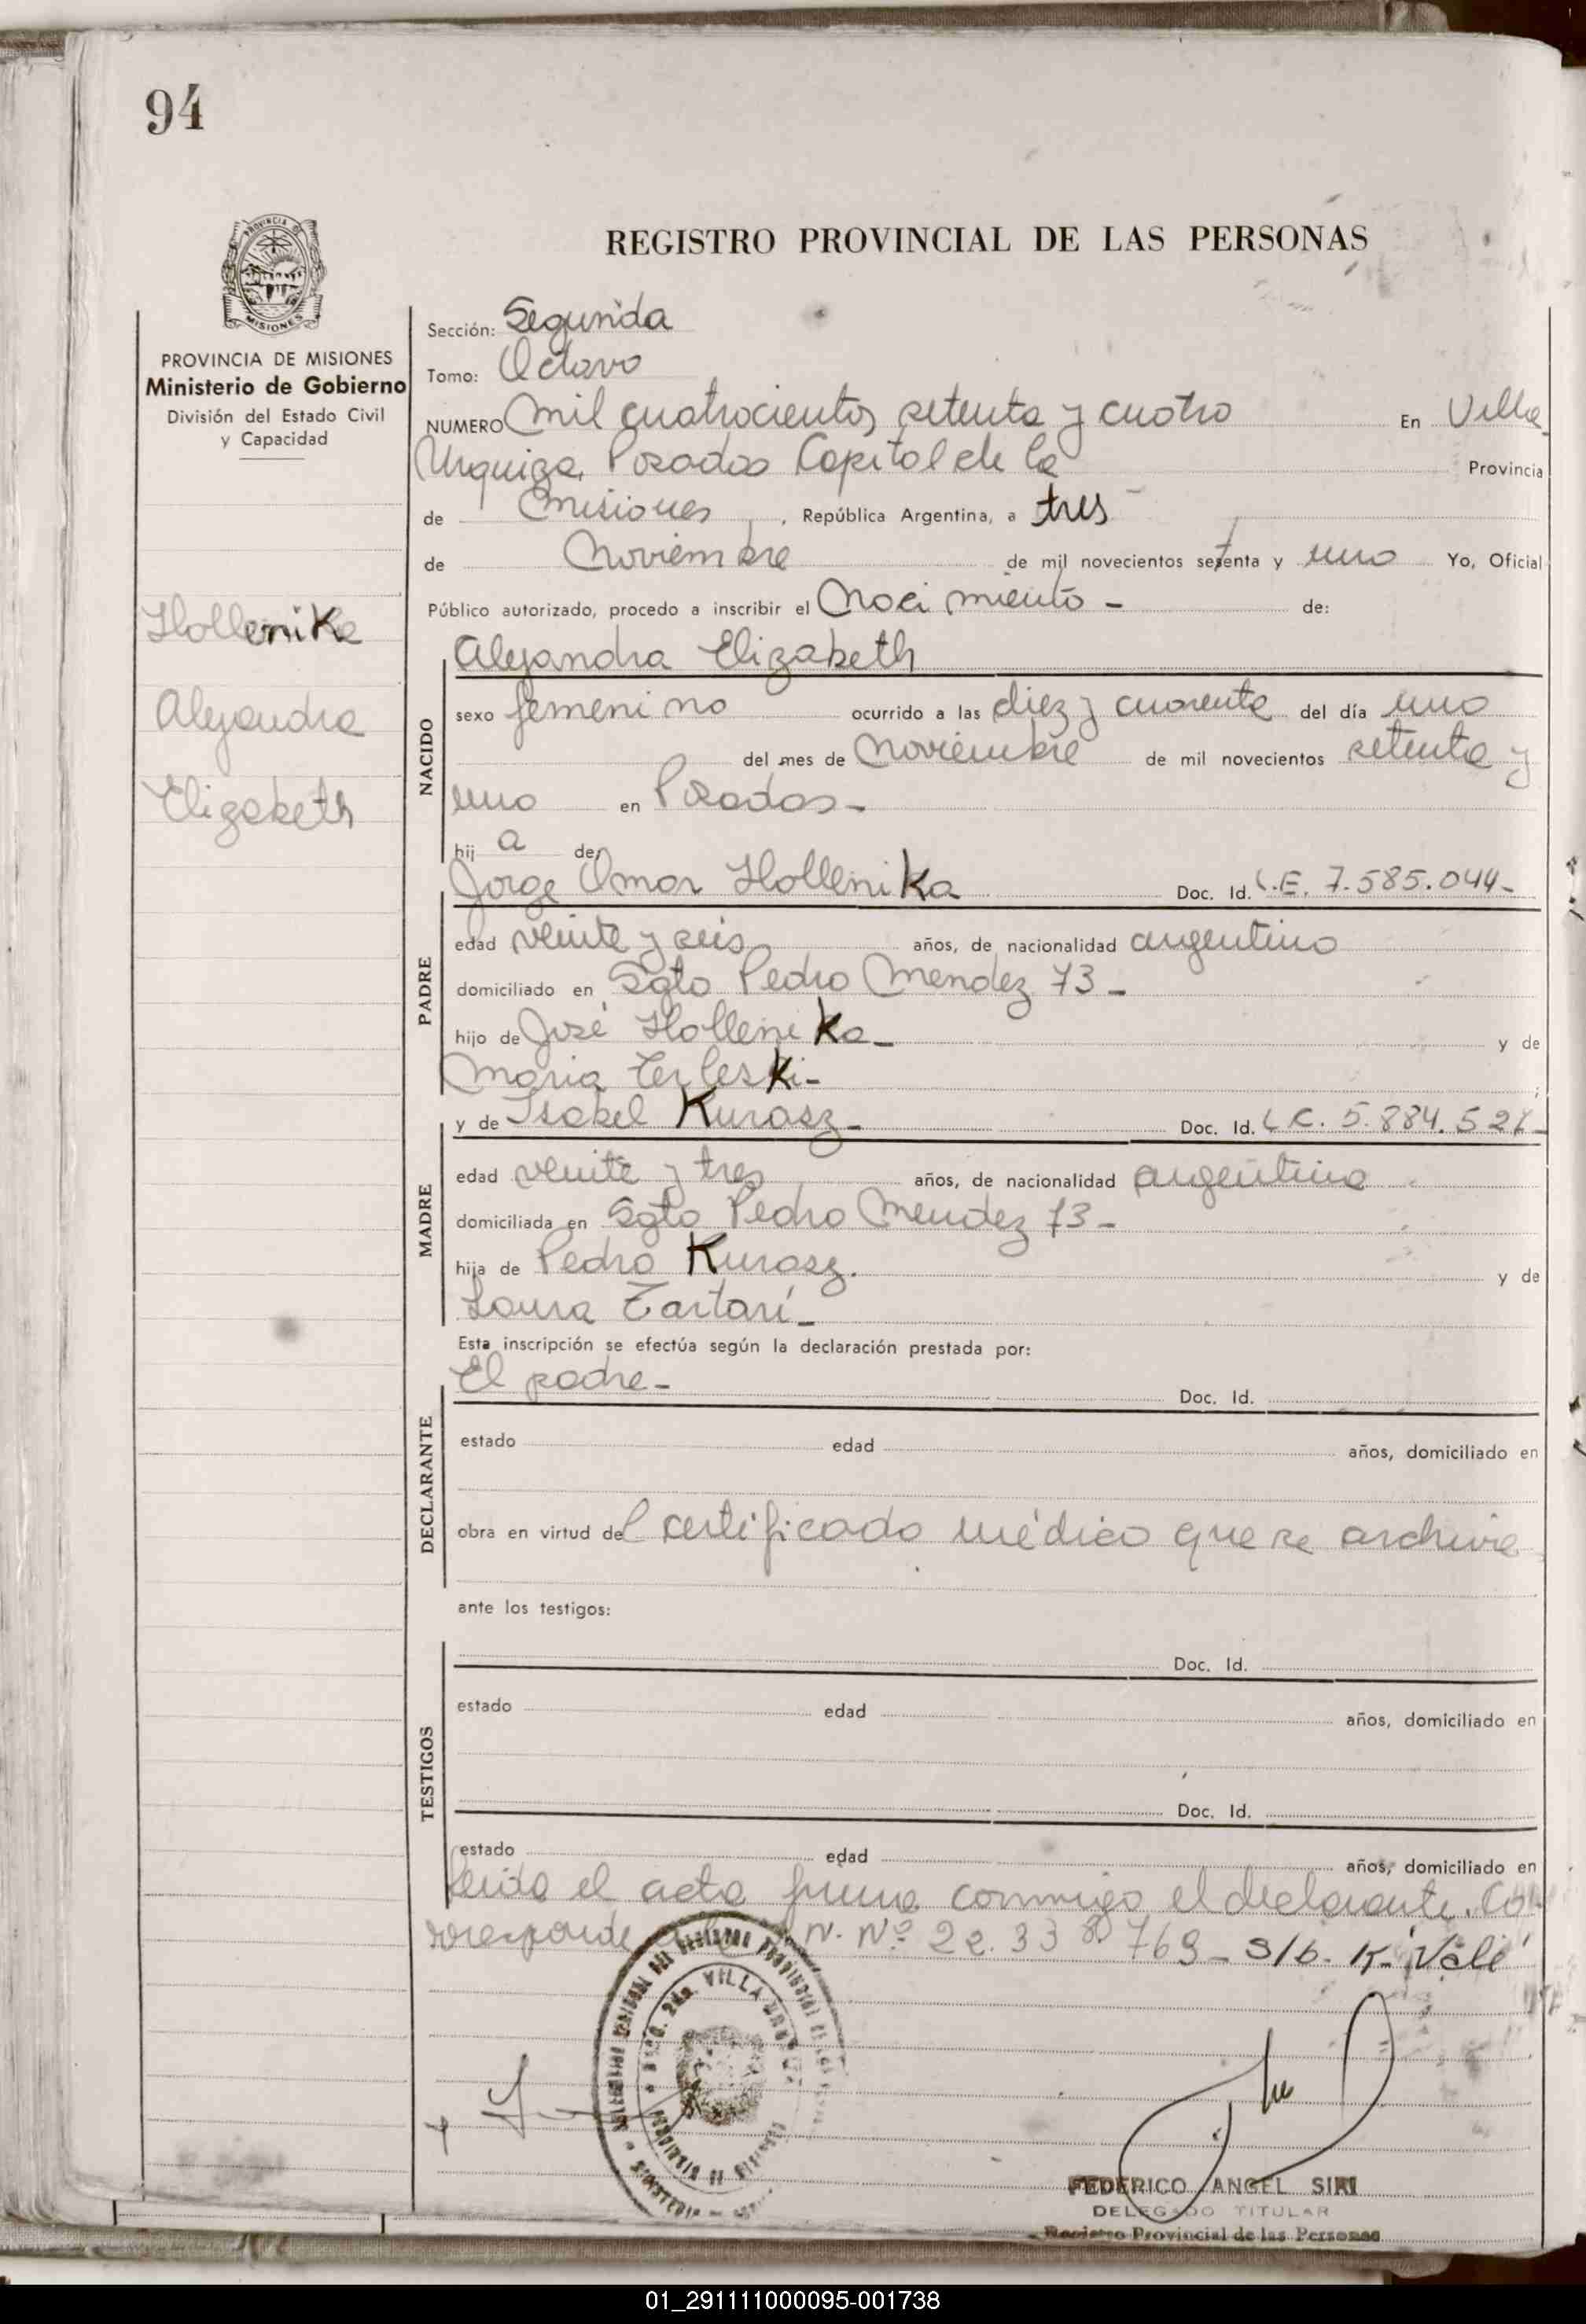 94
REGISTRO PROVINCIAL DE LAS PERSONAS
MISIONES
PROVINCIA DE MISIONES
Ministerio de Gobierno
División del Estado Civil
y Capacidad
Hollenika
Alejandra
Elizabeth
Sección: Segunda
Tomo: Octavo
NUMERO Mil cuatrocientos setenta y cuatro En Villa
Urquiza. Posadas Capital de la Provincia
de Misiones, República Argentina, a tres
de Noviembre de mil novecientos setenta y uno Yo, Oficial
Público autorizado, procedo a inscribir el Nacimiento - de:
NACIDO
Alejandra Elizabeth
sexo femenino ocurrido a las diez y cuarenta del día uno
del mes de Noviembre de mil novecientos setenta y
uno en Posadas-
hij a de
PADRE
Jorge Omar Hollenika Doc. Id. L.E. 7.585.044-
edad veinte y seis años, de nacionalidad argentino
domiciliado en Sgto Pedro Mendez 73-
hijo de José Hollenika- y de
Maria Terleski-
MADRE
y de Isabel Kurasz- Doc. Id. L.C. 5.884.52
edad veinte y tres años, de nacionalidad argentina
domiciliada en Sgto Pedro Mendez 73-
hija de Pedro Kurasz. y de
Laura Tartarí-
Esta inscripción se efectúa según la declaración prestada por:
DECLARANTE
El padre- Doc. Id.
estado edad años, domiciliado en
obra en virtud del certificado médico que se archiva
ante los testigos:
TESTIGOS
Doc. Id.
estado edad años, domiciliado en
Doc. Id.
estado edad años, domiciliado en
Leída el acta firma conmigo el declarante. Co
rresponde N. Nº 22.33 769- S/b. K. Vale
VILLA
PROVINCIA DE MISIONES
FEDERICO ANGEL SIRI
DELEGADO TITULAR
Registro Provincial de las Personas
01_291111000095-001738